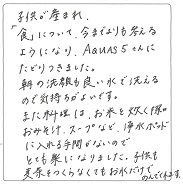 子供が産まれ、
「食」について、今までよりも考える
ようになり、AQUAS5さんに
たどりつきました。
朝の洗顔も良い水で洗える
ので気持ちがよいです。
また料理は、お米を炊く際の
おみそ汁、スープなど、浄水ポット
に入れる手間がないので
とても楽になりました。子供も
麦茶をつくらなくてもお水だけで
のんでくれます。